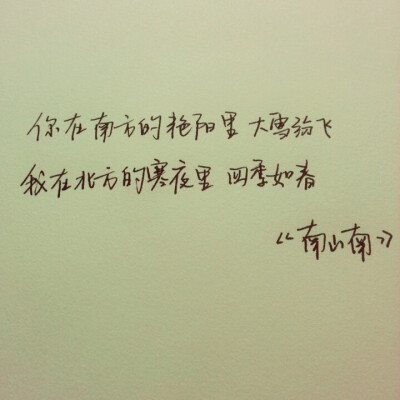 你在南方的艳阳里 大雪纷飞
我在北方的寒夜里 四季如春
《南山南》